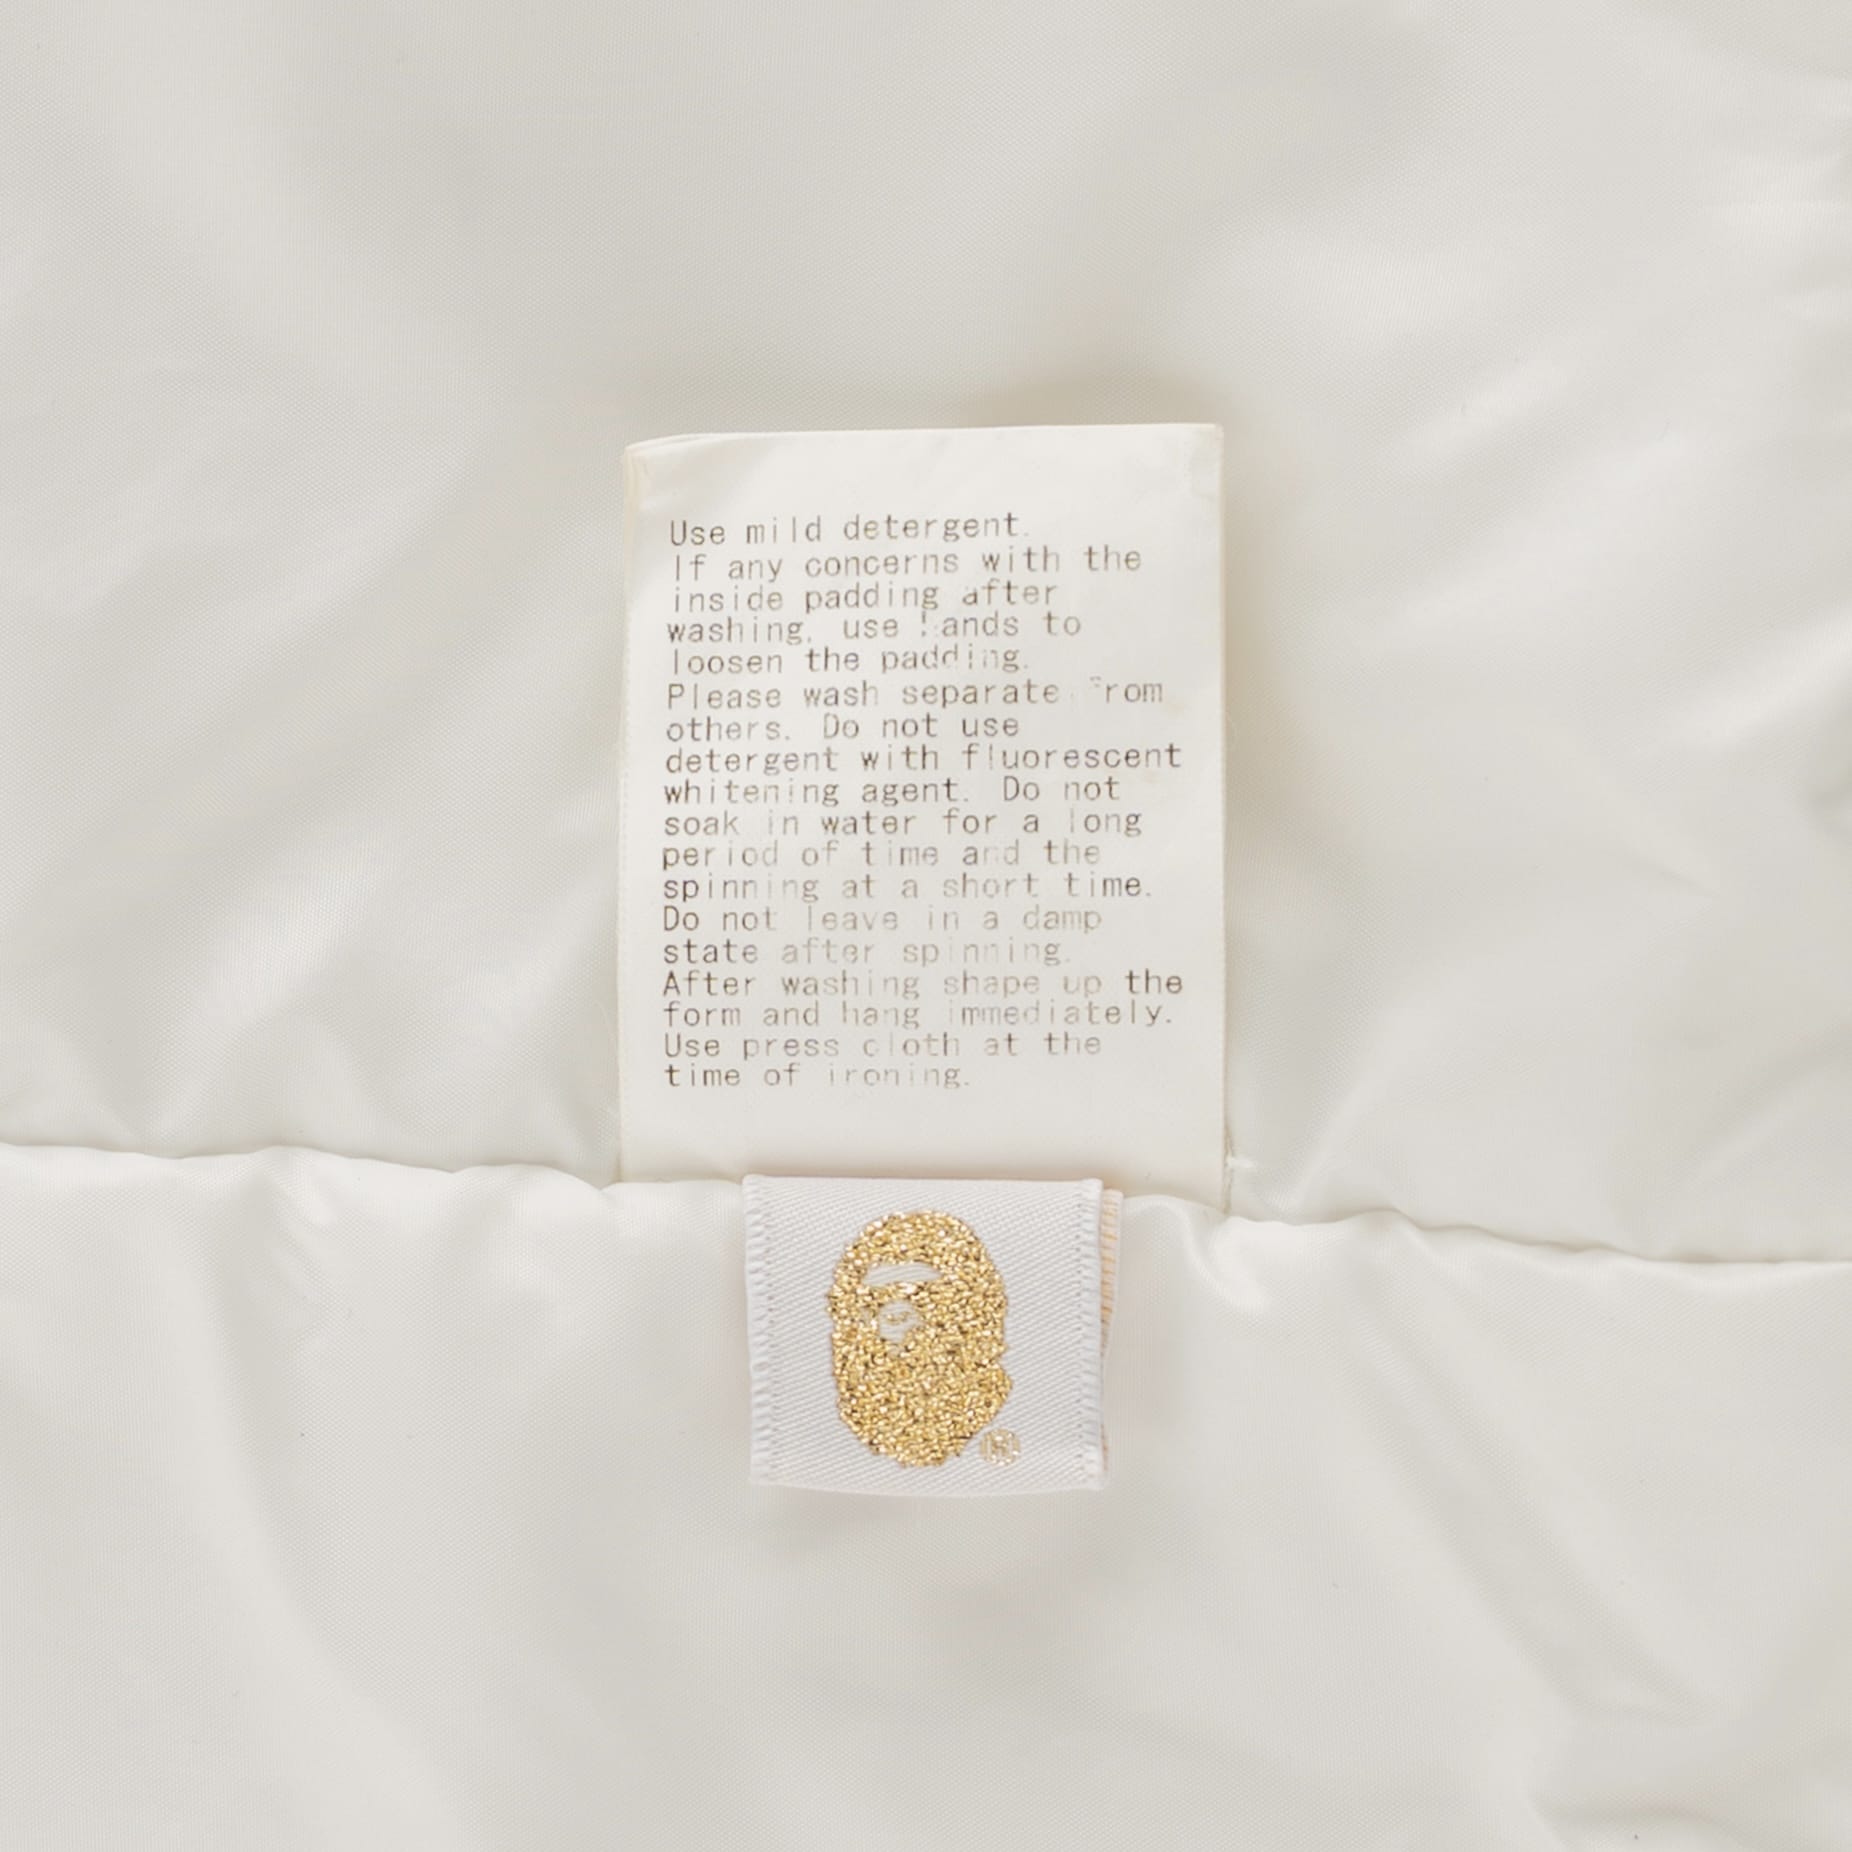 Use mild detergent.
If any concerns with the
inside padding after
washing, use hands to
loosen the padding.
Please wash separate from
others. Do not use
detergent with fluorescent
whitening agent. Do not
soak in water for a long
period of time and the
spinning at a short time.
Do not leave in a damp
state after spinning.
After washing shape up the
form and hang immediately.
Use press cloth at the
time of ironing.
®